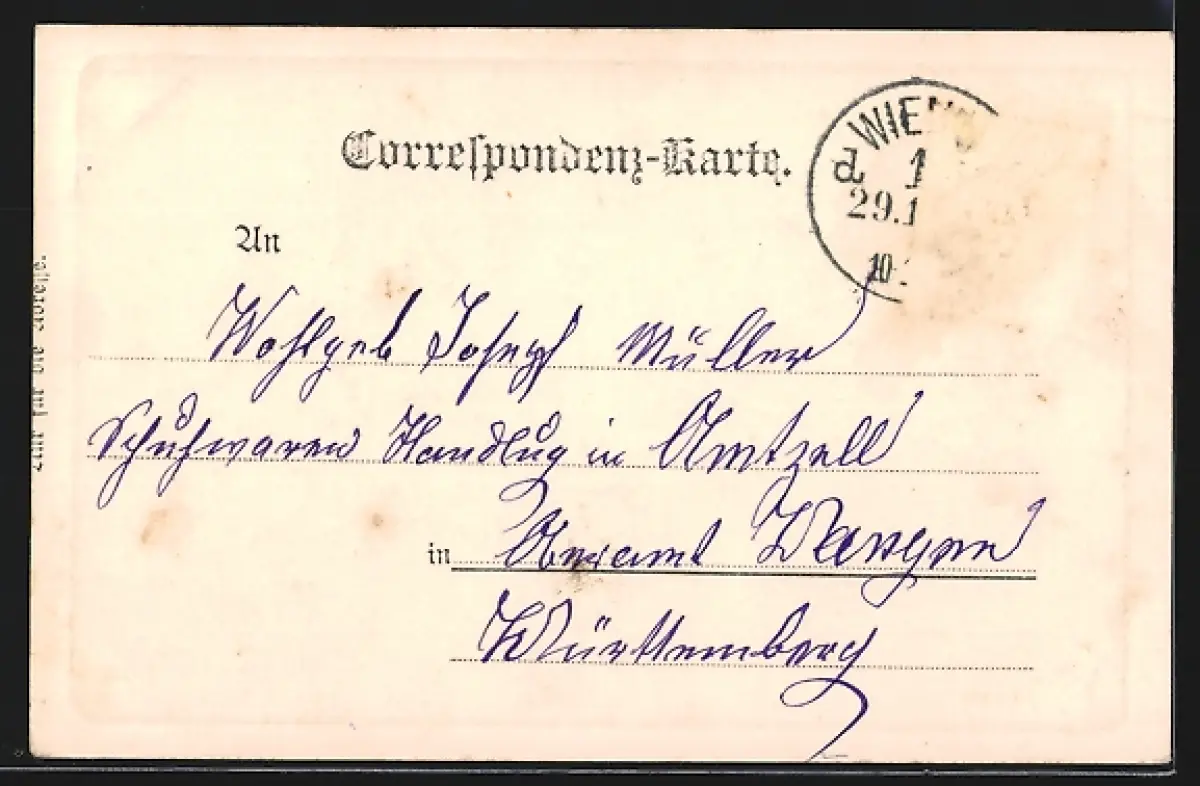 Correspondenz-Karte.
WIEN
d 1
29.1
10
An
Wohlgeb Joseph Müller
Schuhwaren Handlug in Amtzell
in Oberamt Wangen
Württemberg
Nur für die Adresse.